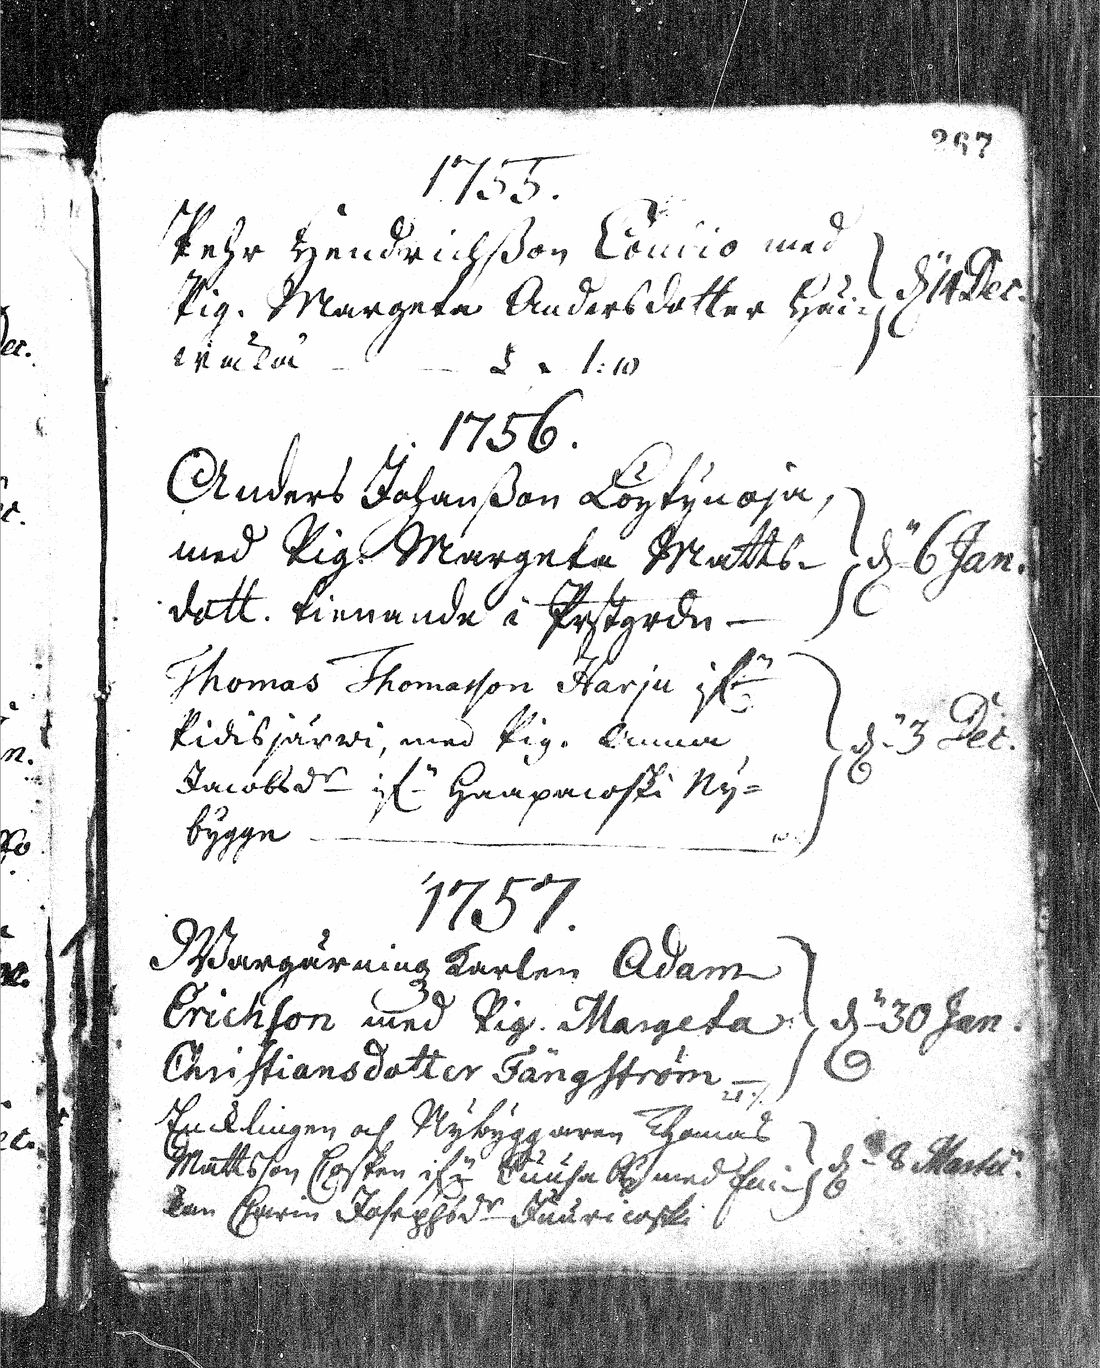 297
1755.
Pehr Hendrichßon med
Pig. Margeta Andersdotter
d 14 Dec.
1:10
1756.
Anders Johanßon Löytynoja,
med Pig. Margeta Matts-
dott. tienande i Prstgrdn
dn 6 Jan.
Thomas Thomasson Harju ifrn
Pidisjärwi, med Pig. Anna
Jacobsdr ifrn Haapacoski Ny=
bygge
dn 3 Dec.
1757.
Wargärning Karlen Adam
Erichson med Pig. Margeta
Christiansdotter Fångström
dn 30 Jan.
Encklingen och Nybyggaren Thomas
Mattsson ifrn med
kan Carin Josephsdr
d 8 Martii.